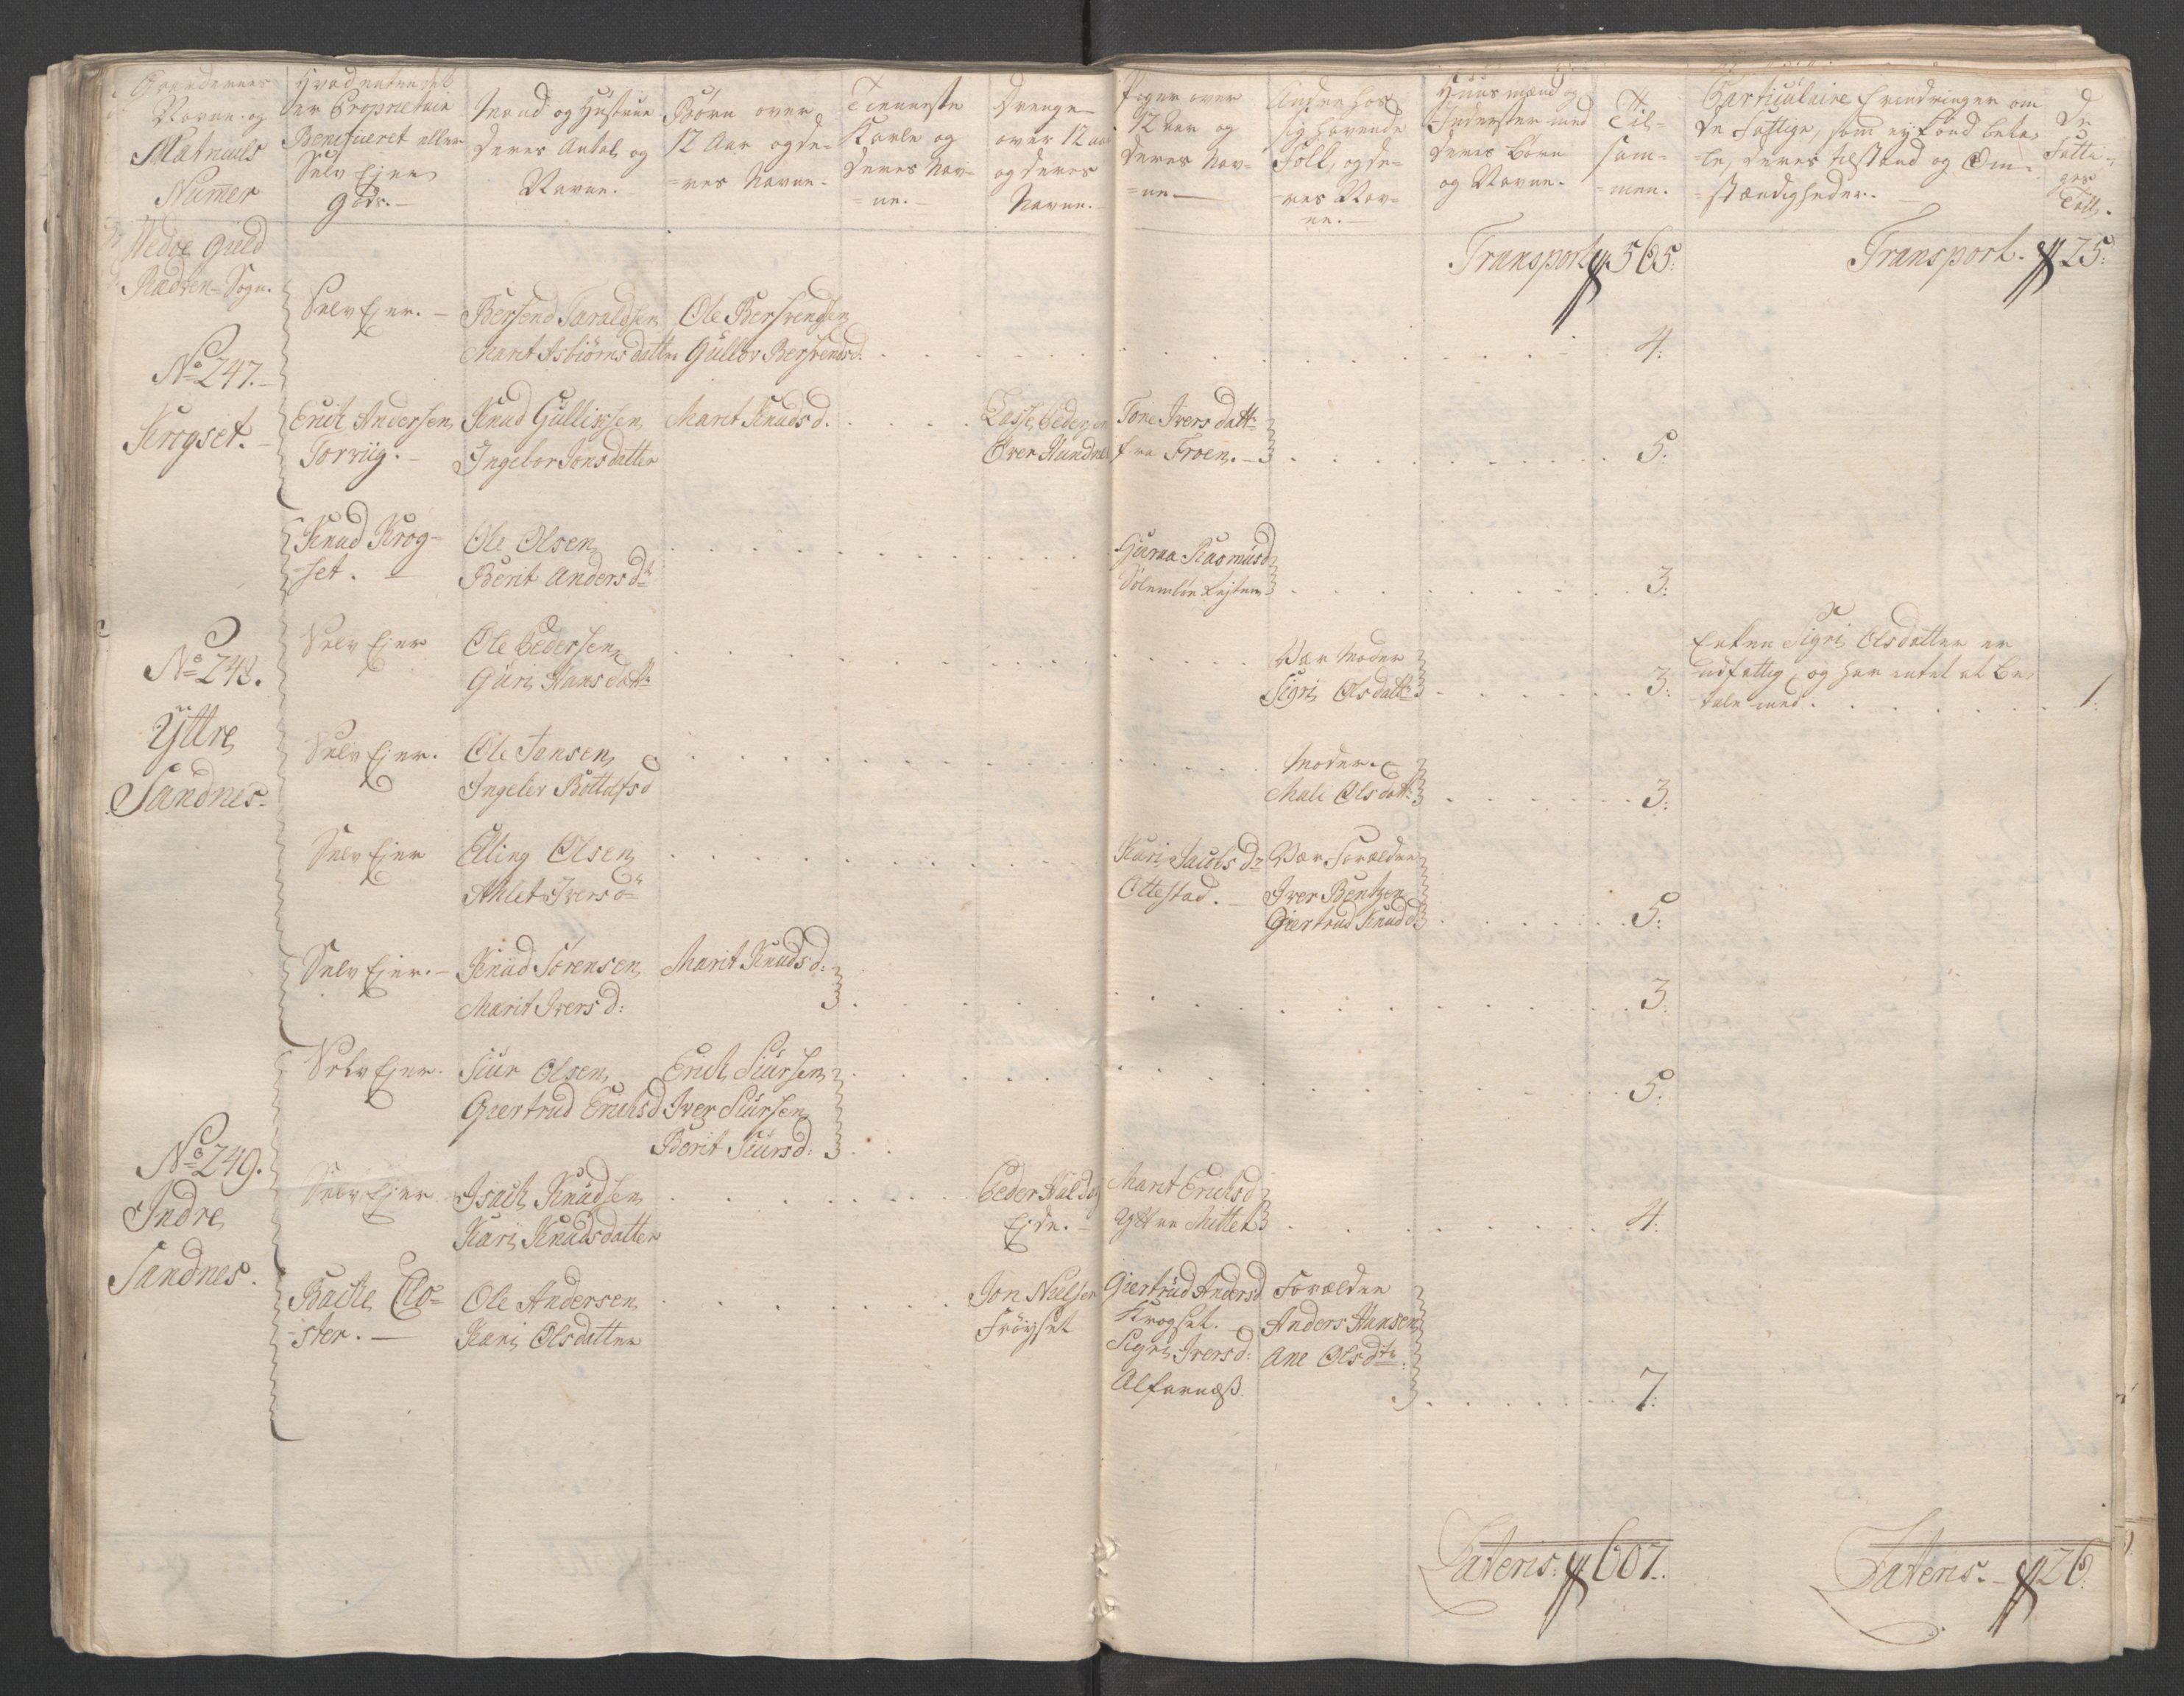 Gaardernes
Navne og
Matriculs
Numer
Hvad enten det
er Proprietair
Beneficeret eller
Selv Ejer
gods.
Mand og Hustrue
deres Antal og
Navne.
Børn over
12 Aar og de-
=res Navne.
Tienneste
Karle og
deres Nav-
=ne.
Drenge
over 12 aar
og deres
Navne.
Piger over
12 Aar og
deres Nav-
=ne
Andre hos
sig havende
Folk, og de-
=res Nav-
ne.
Huusmænd og
Inderster med
deres børn
og Navne.
Til-
sam-
=men.
Particulaire Erindringer om
de Fattige, som ej kand beta-
=le, deres tilstand og Om-
=stændigheder.
De
Fatti-
ges
Tall.
Nedre Guld
Sogn.
Transport 565:
Transport. 25:
Selv Ejer.
Bersend Taraldsen
Ole Bersvendsen
Marit Asbiørns datter
Gullov Bersvendsd:
4:
No 247.
Krogset.
Erich Andersen
Torvüg.
Knud Gullixsen
Ingebor Jonsdatter
Marit Knudsd.
Lasse Pedersen
Over Hundne
Tone Ivers dattr
fra Froen.
5:
Knud Krog=
set.
Ole Olsen
Berit Anders dr
Rasmusd
3:
No 248.
Yttre
Sandnes.
Selv Ejer
Ole Pedersen
Guri Hans dattr
Vær Moder
Sigri Olsdattr
3:
Enken Sigri Olsdatter er
udfattig, og har intet at be-
tale med.
1:
Selv Ejer.
Ole Jonsen
Ingeler Bottolfsd
Moder
Mali Olsdattr
3:
Selv Ejer
Elling Olsen
Ahlet Ivers dr
Kari Jacobs dr
Ottestad.
Vær Forældre
Iver Bentzen
Giertrud Knudsd
5:
Selv Ejer.
Knud Sørensen
Marit Ivers d:
Marit Knudsd:
3:
Selv Ejer.
Siur Olsen
Giertrud Erichsd
Erich Siursen
Iver Siursen
Berit Siursd:
5:
No 249.
Indre
Sandnes.
Selv Ejer
Isach Knudsen
Kari Knudsdatter
Peder Halds
Ejde.
Marit Erichsd
Yttre Mittet
4:
Bache Clo=
=ster.
Ole Andersen
Kari Olsdatter
Jon Nielsen
Frøyset
Giertrud Andersd
Krogset.
Sigri Iversd:
Alfarnæß
Forældre
Anders Hansen
Ane Olsdtr
7:
Lateris: 607.
Lateris. 26